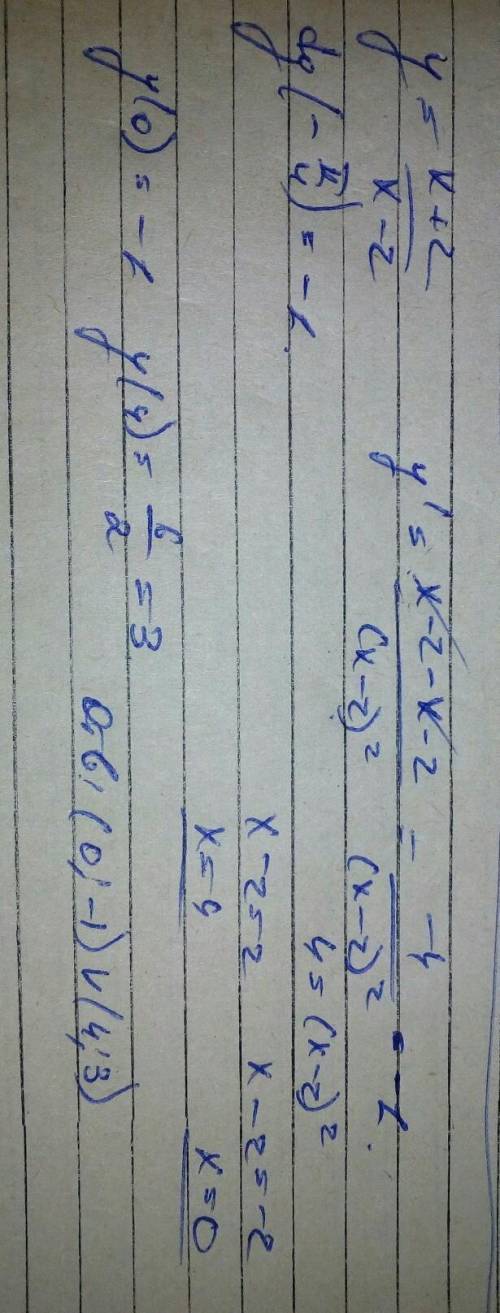 y = x+2/x-2    y' = x-2-x-2/(x-2)² = -4/(x-2)² = -1.
tg(-π/4) = -1.    4 = (x-2)²
x-2=2    x-2=-2
x=4    x=0
y(0) = -1    y(4) = 6/2 = 3    Отв. (0;-1) и (4;3)